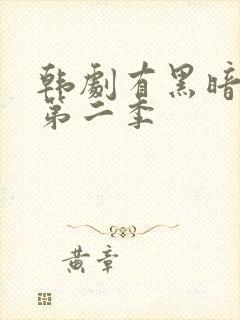 韩剧有黑暗
第二季
黄章